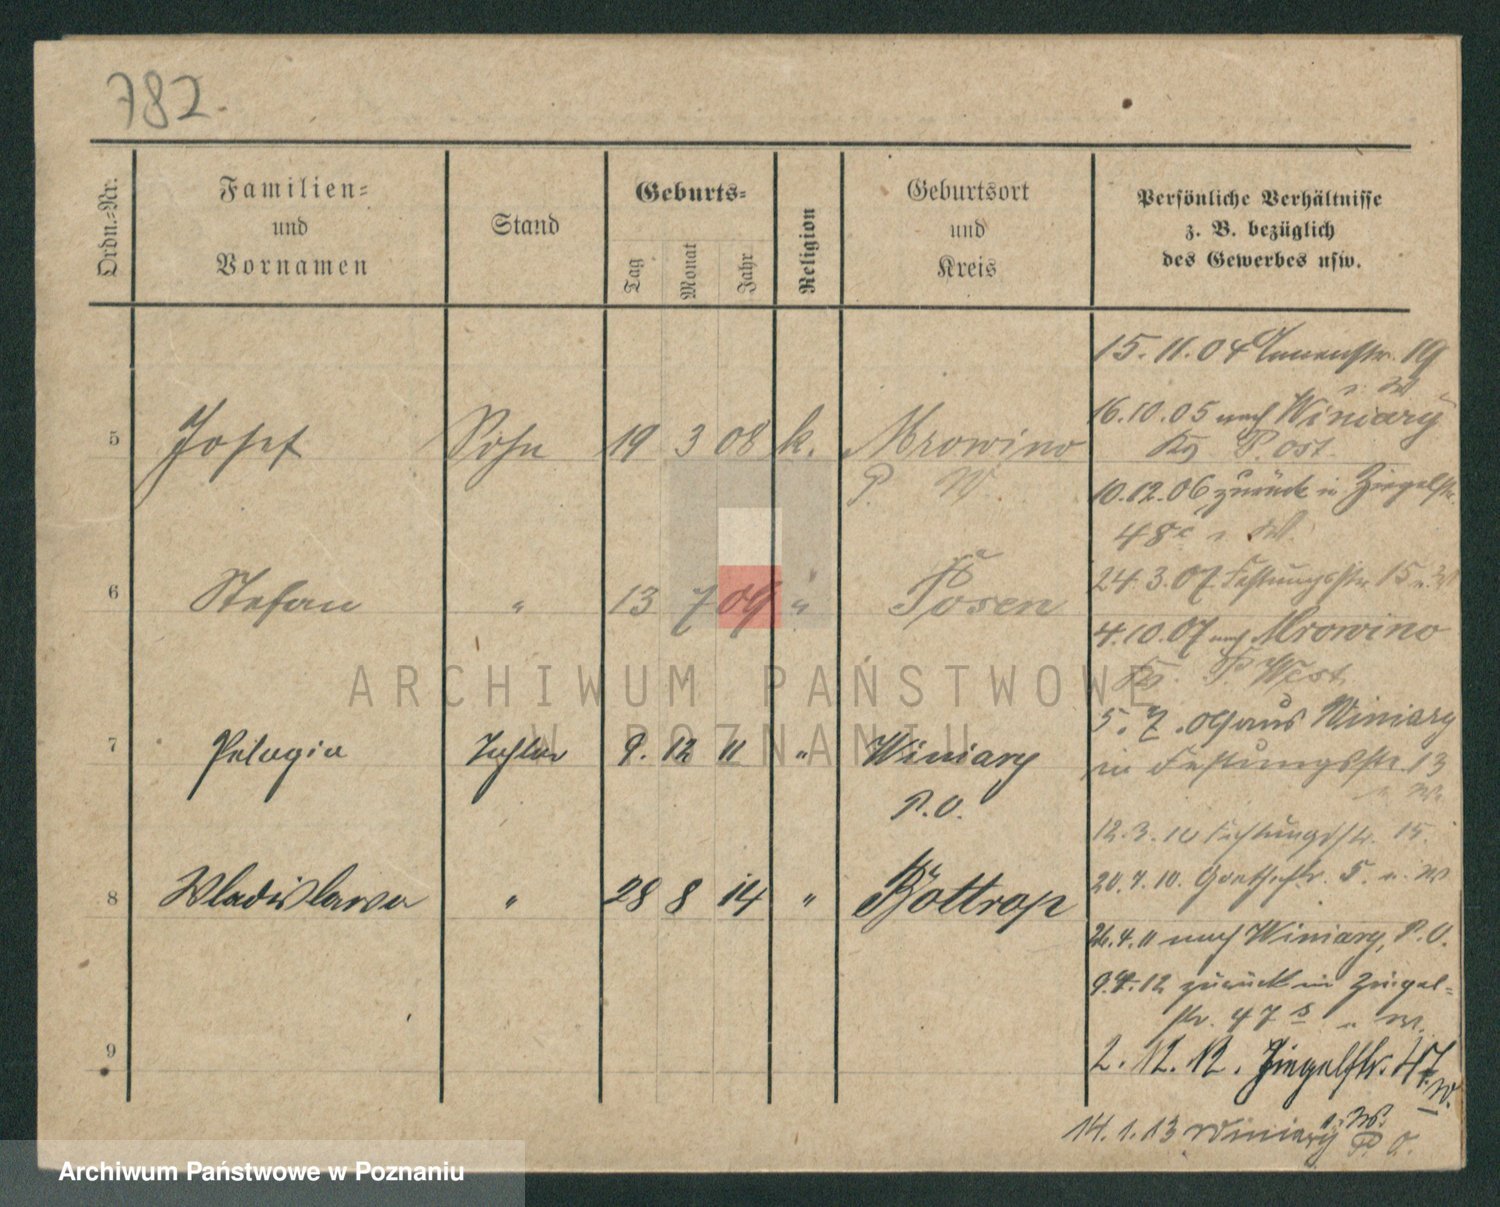 782.
Ordn.-Nr.
Familien-
und
Vornamen
Stand
Geburts-
Tag
Monat
Jahr
Religion
Geburtsort
und
Kreis
Persönliche Verhältnisse
z. B. bezüglich
des Gewerbes usw.
5 Josef Sohn 19 3 08 k. Mrowino
P. W.
6 Stefan " 13 7 09 " Posen
7 Pelagia Tochter 9. 12 11 " Winiary
P.O.
8 Wladislawa " 28 8 14 " Bottrop
9
15.11.04 19
16.10.05 nach Winiary
P. Ost
10.12.06 zurück in Ziegelstr.
48c
24.3.07 Festungsstr 15
4.10.07 nach Mrowino
P. West
5.7.09 aus Winiary
in Festungsstr. 13
12.3.10 Festungsstr. 15.
20.4.10. Goethestr. 5. u. W
26.4.11 nach Winiary, P.O.
9.4.12 zurück in Ziegel-
str. 47
2.12.12. Ziegelstr. 47
14.1.13 Winiary P.O.
ARCHIWUM PAŃSTWOWE
W POZNANIU
Archiwum Państwowe w Poznaniu